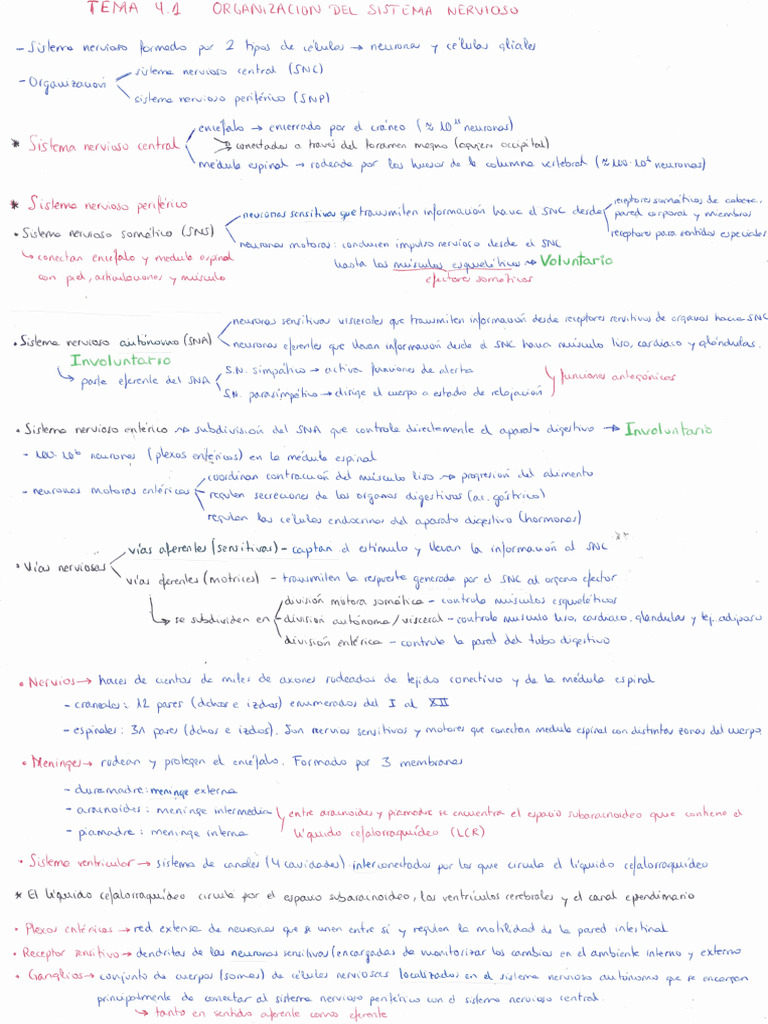 TEMA 4.1 ORGANIZACION DEL SISTEMA NERVIOSO
- Sistema nervioso formado por 2 tipos de células → neuronas y células gliales
sistema nervioso central (SNC)
- Organización
sistema nervioso periférico (SNP)
encéfalo → encerrado por el cráneo (≈ 10¹¹ neuronas)
* Sistema nervioso central
conectados a través del foramen magno (agujero occipital)
médula espinal → rodeada por los huesos de la columna vertebral (≈ 100·10⁶ neuronas)
* Sistema nervioso periférico
receptores somáticos de cabeza,
neuronas sensitivas que transmiten información hacia el SNC desde
pared corporal y miembros
• Sistema nervioso somático (SNS)
receptores para sentidos especiales
neuronas motoras: conducen impulso nervioso desde el SNC
↳ conectan encéfalo y medula espinal
hasta los músculos esqueléticos → Voluntario
con piel, articulaciones y músculo
efectores somáticos
neuronas sensitivas viscerales que transmiten información desde receptores sensitivos de organos hacia SNC
• Sistema nervioso autónomo (SNA)
neuronas eferentes que llevan información desde el SNC hacia músculo liso, cardiaco y glándulas.
Involuntario
S.N. simpático → activa funciones de alerta
↳ parte eferente del SNA
funciones antagónicas
S.N. parasimpático → dirige el cuerpo a estado de relajación
• Sistema nervioso entérico → subdivisión del SNA que controla directamente el aparato digestivo → Involuntario
- 100·10⁶ neuronas (plexos entéricos) en la médula espinal
coordinan contracción del músculo liso → progresión del alimento
- neuronas motoras entéricas
regulan secreciones de los organos digestivos (ac. gástrico)
regulan las células endocrinas del aparato digestivo (hormonas)
vías aferentes (sensitivas) - captan el estímulo y llevan la información al SNC
• Vías nerviosas
vías eferentes (motrices) - transmiten la respuesta generada por el SNC al organo efector
división motora somática - controla músculos esqueléticos
↳ se subdividen en
división autónoma/visceral - controla musculo liso, cardiaco, glandulas y tej. adiposo
división entérica - controla la pared del tubo digestivo
• Nervios → haces de cientos de miles de axones rodeados de tejido conectivo y de la médula espinal
- craneales: 12 pares (dchos e izdos) enumerados del I al XII
- espinales: 31 pares (dchos e izdos). Son nervios sensitivos y motores que conectan medula espinal con distintas zonas del cuerpo
• Meninges → rodean y protegen el encéfalo. Formado por 3 membranas
- duramadre: meninge externa
- aracnoides: meninge intermedia
entre aracnoides y piamadre se encuentra el espacio subaracnoideo que contiene el
- piamadre: meninge interna
líquido cefalorraquídeo (LCR)
• Sistema ventricular → sistema de canales (4 cavidades) interconectados por los que circula el líquido cefalorraquídeo
* El líquido cefalorraquídeo circula por el espacio subaracnoideo, los ventrículos cerebrales y el canal ependimario
• Plexos entéricos → red extensa de neuronas que se unen entre sí y regulan la motilidad de la pared intestinal
• Receptor sensitivo → dendritas de las neuronas sensitivas (encargadas de monitorizar los cambios en el ambiente interno y externo
• Ganglios → conjunto de cuerpos (somas) de células nerviosas localizados en el sistema nervioso autónomo que se encargan
principalmente de conectar al sistema nervioso periférico con el sistema nervioso central.
↳ tanto en sentido aferente como eferente